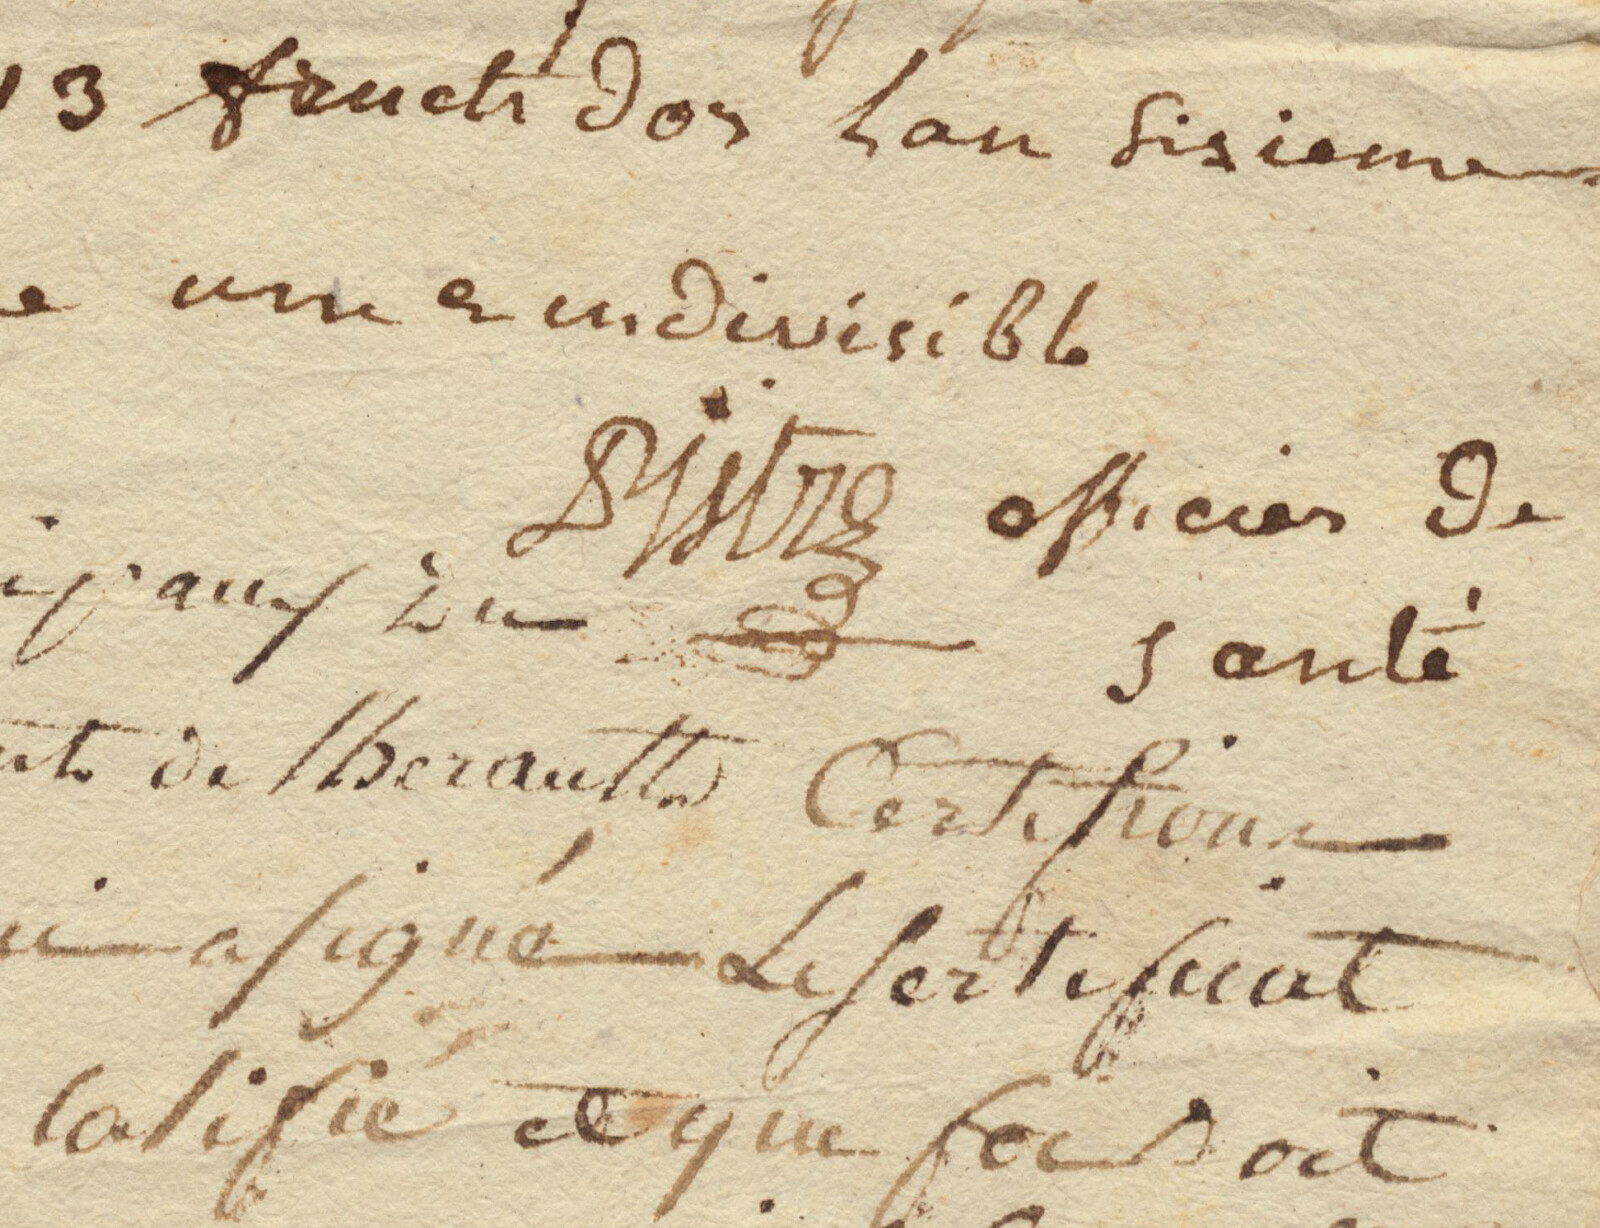 13 fructidor lan sisieme
e une e indivisibl
officier de
ipaux du
santé
ent de lheraultt Certifions
ui a signé Le sertificat
calisfié et que foi soit